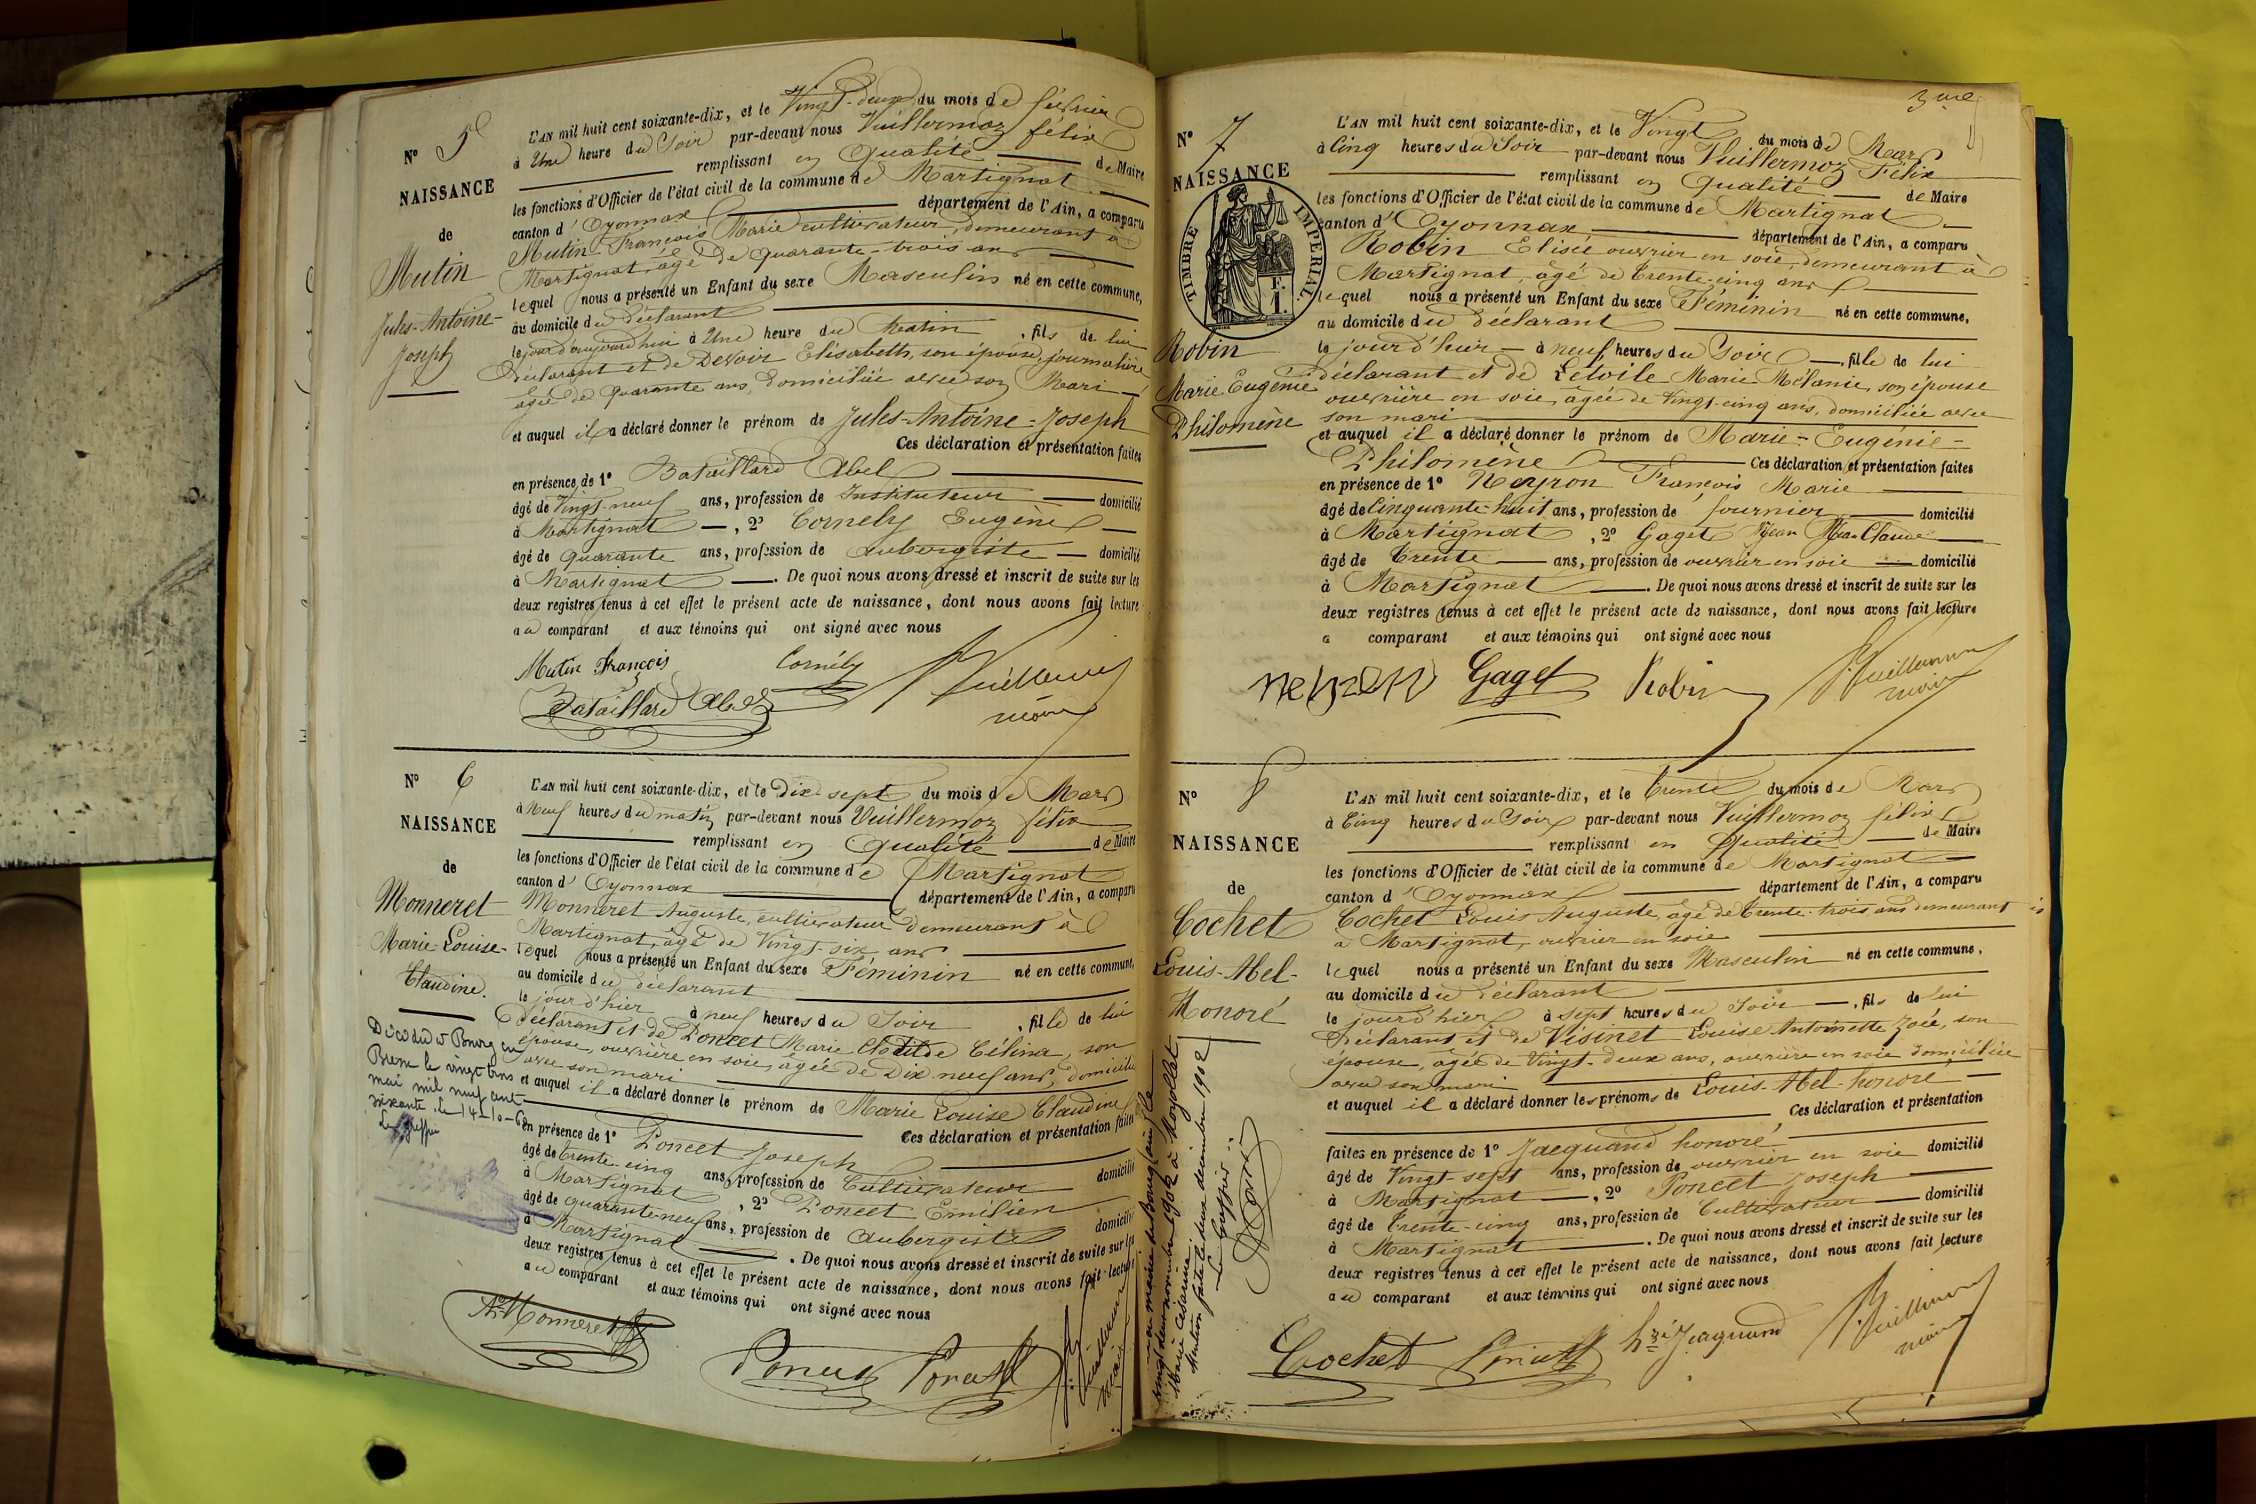 N° 5
NAISSANCE
de
Mutin
Jules-Antoine-
Joseph
L'AN mil huit cent soixante-dix, et le Vingt-deux du mois de février
à Une heure du Soir par-devant nous Vuillermoz félix
remplissant en Qualité de Maire
les fonctions d'Officier de l'état civil de la commune de Martignat
canton d'Oyonnax département de l'Ain, a comparu
Mutin François Marie cultivateur, demeurant à
Martignat, âgé de quarante-trois ans
lequel nous a présenté un Enfant du sexe Masculin né en cette commune,
au domicile du déclarant
le jour d'aujourd'hui à Une heure du Matin, fils de lui
Déclarant et de Devoir Elisabeth, son épouse, journalière
âgée de quarante ans, Domiciliée avec son Mari
et auquel il a déclaré donner le prénom de Jules-Antoine-Joseph
Ces déclaration et présentation faites
en présence de 1° Bataillard Abel
âgé de Vingt-neuf ans, profession de Instituteur domicilié
à Martignat, 2° Cornely Eugène
âgé de quarante ans, profession de aubergiste domicilié
à Martignat. De quoi nous avons dressé et inscrit de suite sur les
deux registres tenus à cet effet le présent acte de naissance, dont nous avons fait lecture
au comparant et aux témoins qui ont signé avec nous
Mutin François Cornély Vuillermoz
Bataillard Abel maire
N° 6
NAISSANCE
de
Monneret
Marie-Louise-
Claudine.
L'AN mil huit cent soixante-dix, et le Dix sept du mois de Mars
à Neuf heures du matin par-devant nous Vuillermoz félix
remplissant en Qualité de Maire
les fonctions d'Officier de l'état civil de la commune de Martignat
canton d'Oyonnax département de l'Ain, a comparu
Monneret Auguste, cultivateur demeurant à
Martignat, âgé de Vingt-six ans
lequel nous a présenté un Enfant du sexe Féminin né en cette commune,
au domicile du déclarant
le jour d'hier à neuf heures du Soir, fille de lui
Déclarant et de Poncet Marie Clotilde Célina, son
épouse, ouvrière en soie, âgée de Dix neuf ans, domiciliée
avec son mari
et auquel il a déclaré donner le prénom de Marie Louise Claudine
Ces déclaration et présentation faites
en présence de 1° Poncet Joseph
âgé de trente-cinq ans, profession de Cultivateur domicilié
à Martignat, 2° Poncet Emilien
âgé de quarante-neuf ans, profession de Aubergiste domicilié
à Martignat. De quoi nous avons dressé et inscrit de suite sur les
deux registres tenus à cet effet le présent acte de naissance, dont nous avons fait lecture
au comparant et aux témoins qui ont signé avec nous
Décédée à Bourg en
Bresse le vingt trois
mai mil neuf cent
soixante. Le 14-10-60
Le greffier
A. Monneret
Poncet Poncet Vuillermoz
maire
3me
N° 7
NAISSANCE
TIMBRE IMPERIAL
F.
1.
Robin
Marie Eugénie
Philomène
L'AN mil huit cent soixante-dix, et le Vingt du mois de Mars
à Cinq heures du Soir par-devant nous Vuillermoz Félix
remplissant en Qualité de Maire
les fonctions d'Officier de l'état civil de la commune de Martignat
canton d'Oyonnax, département de l'Ain, a comparu
Robin Elisée ouvrier en soie, demeurant à
Martignat, âgé de trente-cinq ans
lequel nous a présenté un Enfant du sexe Féminin né en cette commune,
au domicile du déclarant
le jour d'hier à neuf heures du Soir, fille de lui
déclarant et de Letoile Marie Mélanie, son épouse
ouvrière en soie, âgée de Vingt-cinq ans, domiciliée avec
son mari
et auquel il a déclaré donner le prénom de Marie-Eugénie-
Philomène Ces déclaration et présentation faites
en présence de 1° Neyron François Marie
âgé de Cinquante-huit ans, profession de fournier domicilié
à Martignat, 2° Gaget Jean Marie Claude
âgé de trente ans, profession de ouvrier en soie domicilié
à Martignat. De quoi nous avons dressé et inscrit de suite sur les
deux registres tenus à cet effet le présent acte de naissance, dont nous avons fait lecture
a comparant et aux témoins qui ont signé avec nous
neyron Gaget Robin Vuillermoz
maire
N° 8
NAISSANCE
de
Cochet
Louis-Abel-
Honoré
L'AN mil huit cent soixante-dix, et le trente du mois de Mars
à Cinq heures du Soir par-devant nous Vuillermoz félix
remplissant en Qualité de Maire
les fonctions d'Officier de l'état civil de la commune de Martignat
canton d'Oyonnax département de l'Ain, a comparu
Cochet Louis Auguste, âgé de trente-trois ans demeurant
à Martignat, ouvrier en soie
lequel nous a présenté un Enfant du sexe Masculin né en cette commune,
au domicile du Déclarant
le jour d'hier à sept heures du Soir, fils de lui
Déclarant et de Visinet Louise Antoinette Zoé, son
épouse, âgée de Vingt-deux ans, ouvrière en soie domiciliée
avec son mari
et auquel il a déclaré donner les prénoms de Louis-Abel-honoré
Ces déclaration et présentation
faites en présence de 1° Jacquand honoré
âgé de Vingt sept ans, profession de ouvrier en soie domicilié
à Martignat, 2° Poncet Joseph
âgé de trente-cinq ans, profession de Cultivateur domicilié
à Martignat. De quoi nous avons dressé et inscrit de suite sur les
deux registres tenus à cet effet le présent acte de naissance, dont nous avons fait lecture
au comparant et aux témoins qui ont signé avec nous
en mairie de Bourg (Ain) le
vingt deux novembre 1902 à Moyollet
Marie Césarine.
Mention faite le deux décembre 1902
Le Greffier:
Cochet Poncet hré Jacquand Vuillermoz
maire